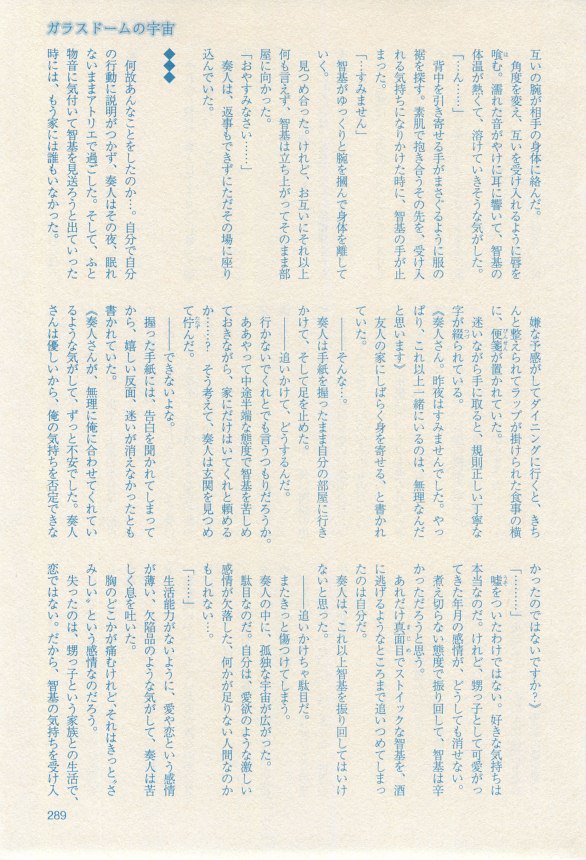 ガラスドームの宇宙
互いの腕が相手の身体に絡んだ。
角度を変え、互いを受け入れるように唇を
喰む。濡れた音がやけに耳に響いて、智基の
体温が熱くて、溶けていきそうな気がした。
「…ん……」
背中を引き寄せる手がまさぐるように服の
裾を探す。素肌で抱き合うその先を、受け入
れる気持ちになりかけた時に、智基の手が止
まった。
「…すみません」
智基がゆっくりと腕を摑んで身体を離して
いく。
見つめ合った。けれど、お互いにそれ以上
何も言えず、智基は立ち上がってそのまま部
屋に向かった。
「おやすみなさい……」
奏人は、返事もできずにただその場に座り
込んでいた。
◆◆◆
何故あんなことをしたのか…。自分で自分
の行動に説明がつかず、奏人はその夜、眠れ
ないままアトリエで過ごした。そして、ふと
物音に気付いて智基を見送ろうと出ていった
時には、もう家には誰もいなかった。
嫌な予感がしてダイニングに行くと、きち
んと整えられてラップが掛けられた食事の横
に、便箋が置かれていた。
迷いながら手に取ると、規則正しい丁寧な
字が綴られている。
《奏人さん。昨夜はすみませんでした。やっ
ぱり、これ以上一緒にいるのは、無理なんだ
と思います》
友人の家にしばらく身を寄せる、と書かれ
ていた。
――そんな…。
奏人は手紙を握ったまま自分の部屋に行き
かけて、そして足を止めた。
――追いかけて、どうするんだ。
行かないでくれとでも言うつもりだろうか。
ああやって中途半端な態度で智基を苦しめ
ておきながら、家にだけはいてくれと頼める
か……？　そう考えて、奏人は玄関を見つめ
て佇んだ。
――できないよな。
握った手紙には、告白を聞かれてしまって
から、嬉しい反面、迷いが消えなかったとも
書かれていた。
《奏人さんが、無理に俺に合わせてくれてい
るような気がして、ずっと不安でした。奏人
さんは優しいから、俺の気持ちを否定できな
かったのではないですか？》
「………」
嘘をついたわけではない。好きな気持ちは
本当なのだ。けれど、甥っ子として可愛がっ
てきた年月の感情が、どうしても消せない。
煮え切らない態度で振り回して、智基は辛
かっただろうと思う。
あれだけ真面目でストイックな智基を、酒
に逃げるようなところまで追いつめてしまっ
たのは自分だ。
奏人は、これ以上智基を振り回してはいけ
ないと思った。
――追いかけちゃ駄目だ。
またきっと傷つけてしまう。
奏人の中に、孤独な宇宙が広がった。
駄目なのだ。自分は、愛欲のような激しい
感情が欠落した、何かが足りない人間なのか
もしれない…。
「……」
生活能力がないように、愛や恋という感情
が薄い、欠陥品のような気がして、奏人は苦
しく息を吐いた。
胸のどこかが痛むけれど、それはきっと〝さ
みしい〟という感情なのだろう。
失ったのは、甥っ子という家族との生活で、
恋ではない。だから、智基の気持ちを受け入
289